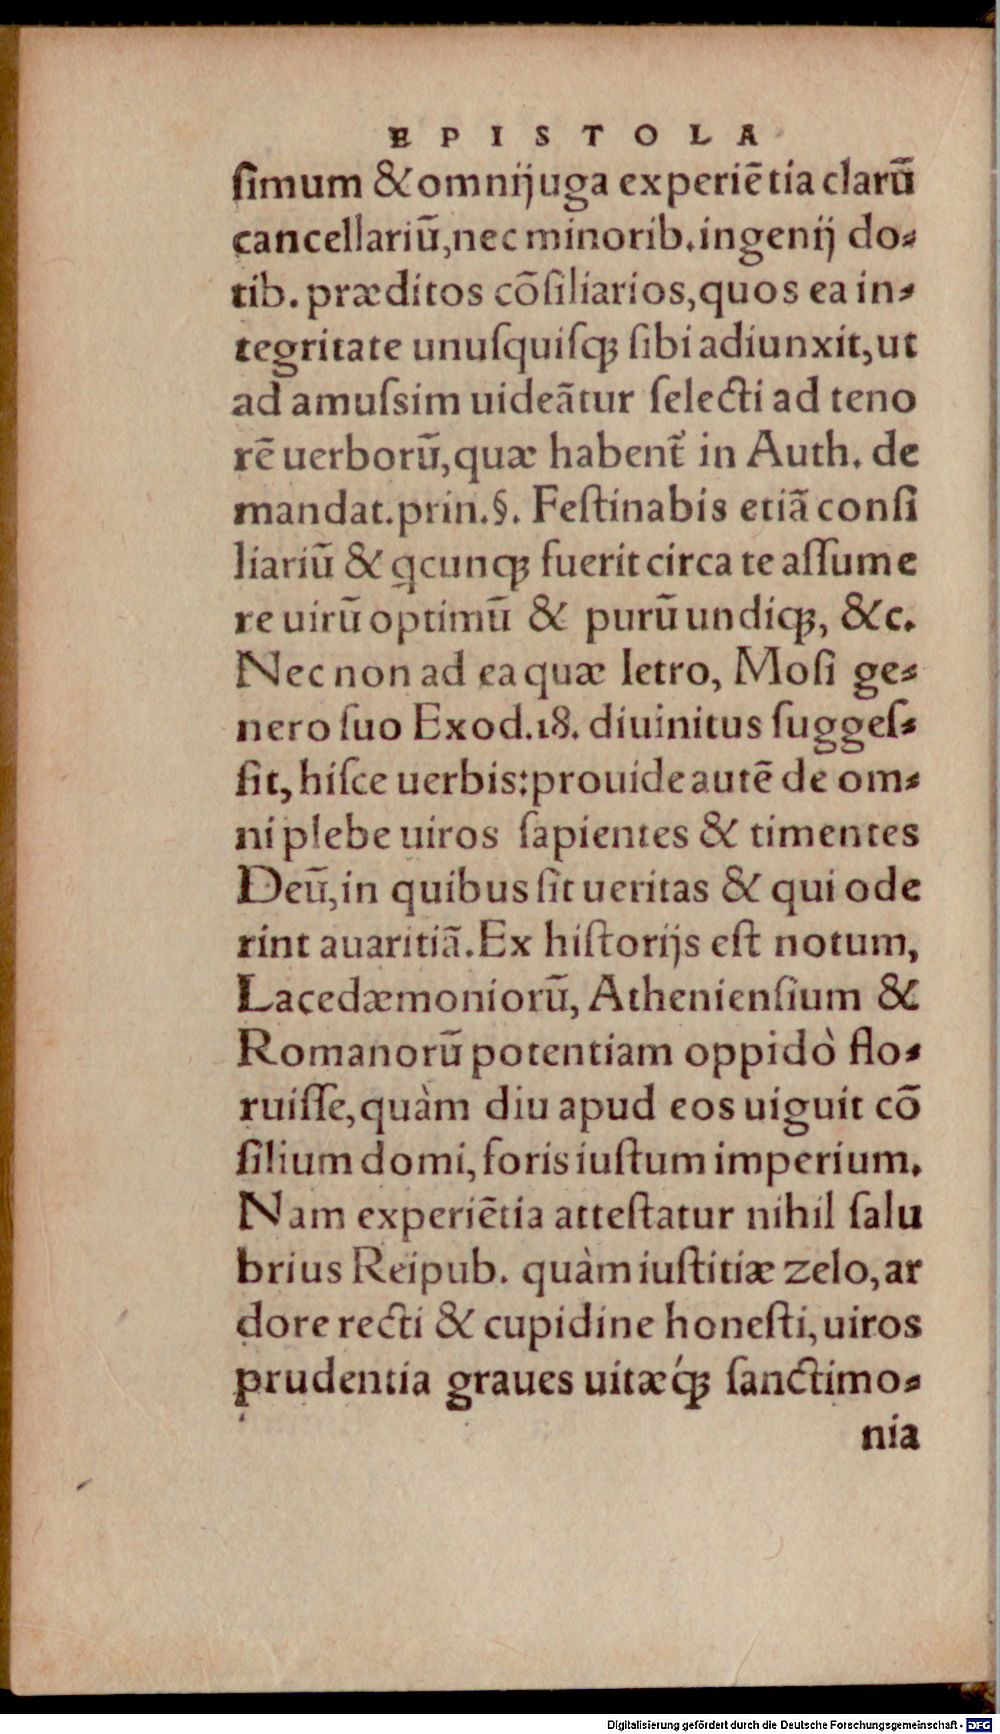 EPISTOLA
ſimum & omnijuga experiētia clarū
cancellariū, nec minorib. ingenij do-
tib. præditos cōſiliarios, quos ea in-
tegritate unuſquiſqꝫ ſibi adiunxit, ut
ad amuſsim uideātur ſelecti ad teno
rē uerborū, quæ habent᷑ in Auth. de
mandat. prin. §. Feſtinabis etiā conſi
liariū & ꝗcunqꝫ fuerit circa te aſſume
re uirū optimū & purū undiqꝫ, &c.
Nec non ad ea quæ Ietro, Moſi ge-
nero ſuo Exod. 18. diuinitus ſuggeſ-
ſit, hiſce uerbis: prouide autē de om-
ni plebe uiros ſapientes & timentes
Deū, in quibus ſit ueritas & qui ode
rint auaritiā. Ex hiſtorijs eſt notum,
Lacedæmoniorū, Athenienſium &
Romanorū potentiam oppidò flo-
ruiſſe, quàm diu apud eos uiguit cō
ſilium domi, foris iuſtum imperium.
Nam experiētia atteſtatur nihil ſalu
brius Reipub. quàm iuſtitiæ zelo, ar
dore recti & cupidine honeſti, uiros
prudentia graues uitæq́ꝫ ſanctimo-
nia
Digitalisierung gefördert durch die Deutsche Forschungsgemeinschaft - DFG